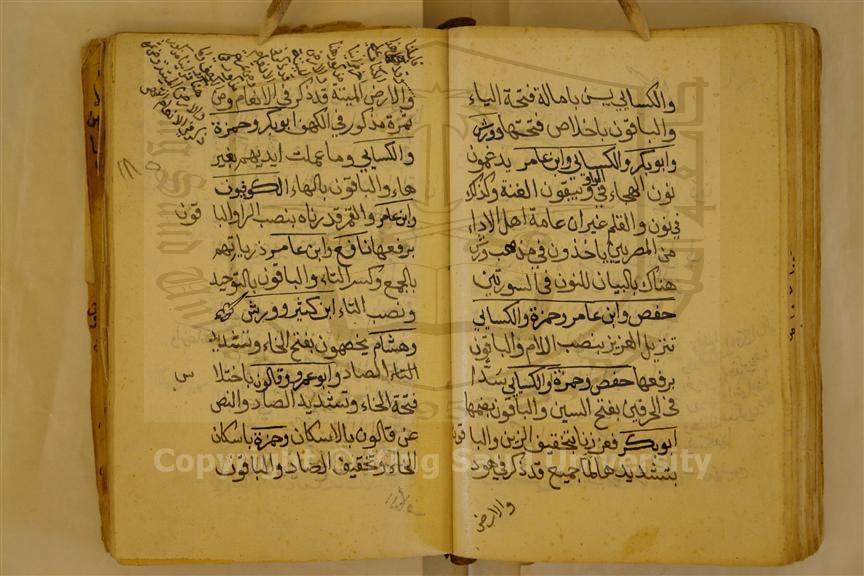 والكسائي يس بامالة فتحة الياء
والباقون باخلاص فتحتها وورش
وابوبكر والكسائي وابن عامر يدغمون
نون الهجاء في الواو ويبقون الغنة وكذلك
في نون والقلم غير ان عامة اهل الاداء
من المصريين ياخذون في مذهب ورش
هناك بالبيان للنون في السورتين
حفص وابن عامر وحمزة والكسائي
تنزيل العزيز بنصب اللام والباقون
برفعها حفص وحمزة والكسائي سدا
في الحرفين بفتح السين والباقون بضمها
ابوبكر فعززنا بتخفيف الزين والباقون
بتشديدها لما جميع قد ذكر في هود
والارض
والارض الميتة قد ذكر في الانعام ومن
ثمره مذكور في الكهف ابوبكر وحمزة
والكسائي وما عملت ايديهم بغير
هاء والباقون بالهاء الكوفيون
وابن عامر والقمر قدرناه بنصب الرا والبا
قون
برفعها نافع وابن عامر ذرياتهم
بالجمع وكسر التاء والباقون بالتوحيد
ونصب التاء ابن كثير وورش
وهشام يخصمون بفتح الخاء وتشديد
الصاد وابوعمرو وقالون باختلا
س
فتحة الخاء وتشديد الصاد والنص
عن قالون بالاسكان وحمزة باسكان
الخاء وتخفيف الصاد والباقون
Copyright © King Saud University